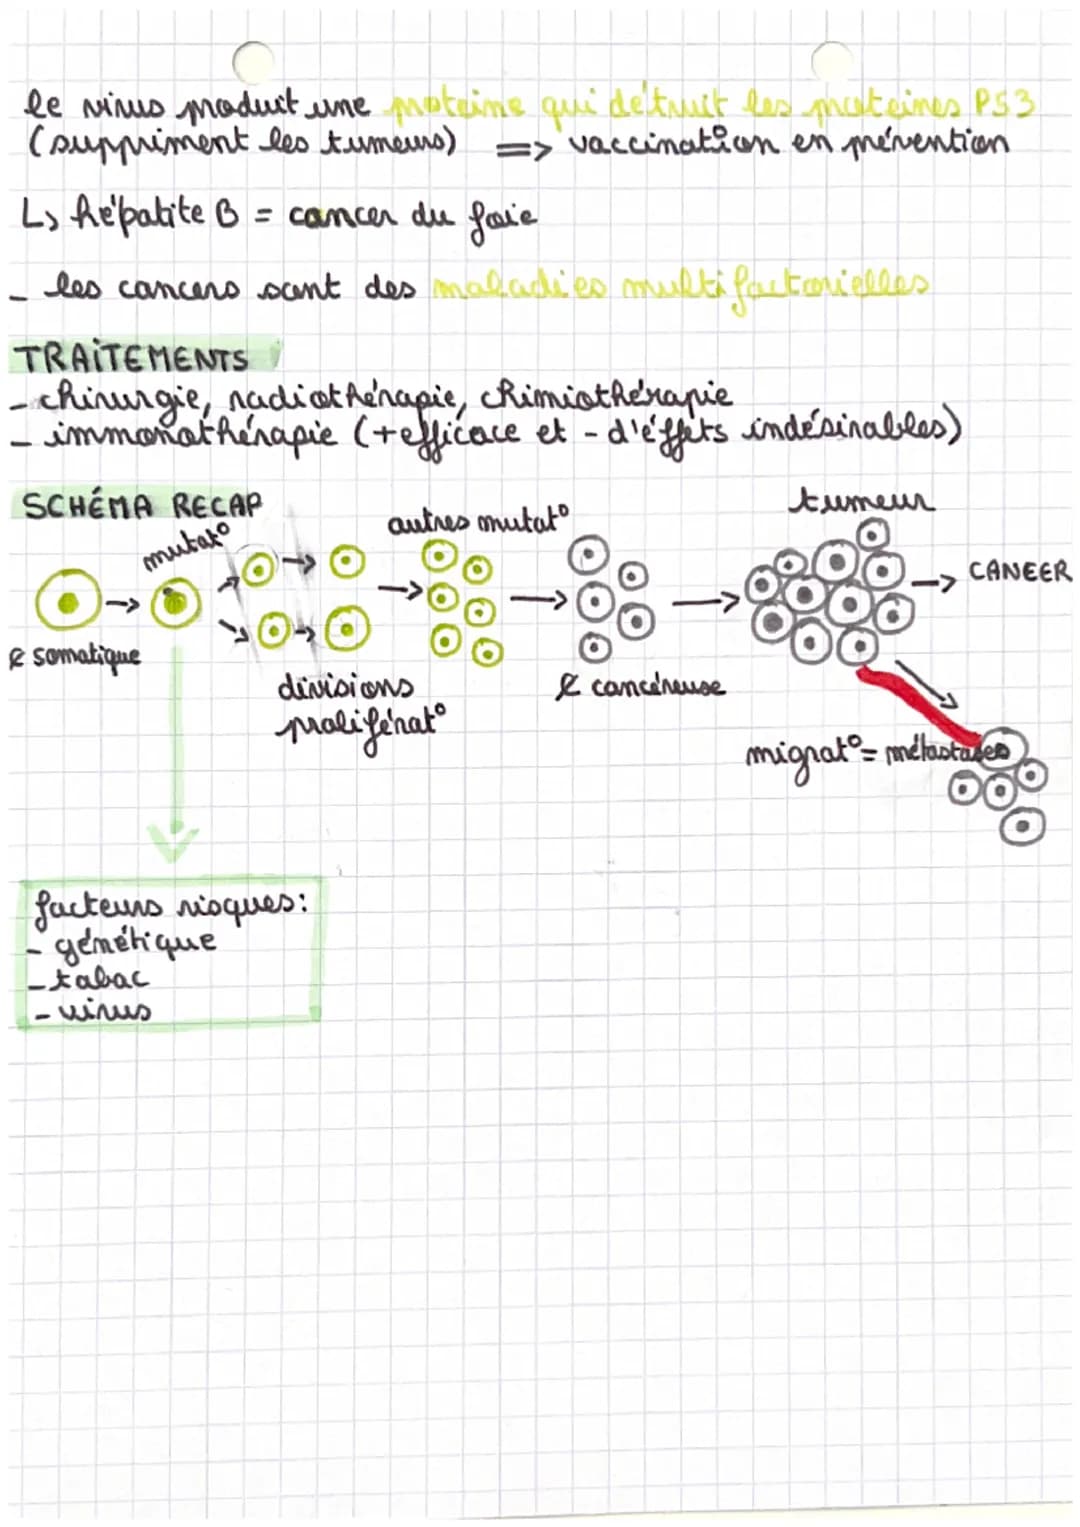 le virus produit une protéine qui détruit les protéines P53
(suppriment les tumeurs) => vaccinat° en prévention
L> hépatite B = cancer du foie
- les cancers sont des maladies multifactorielles
TRAITEMENTS
- chirurgie, radiothérapie, chimiothérapie
- immonothérapie (+efficace et - d'éffets indésirables)
SCHÉMA RECAP
tumeur
autres mutat°
mutat°
CANCER
¢ somatique
divisions
proliférat°
¢ cancéreuse
migrat° = métastases
facteurs risques:
- génétique
- tabac
- virus